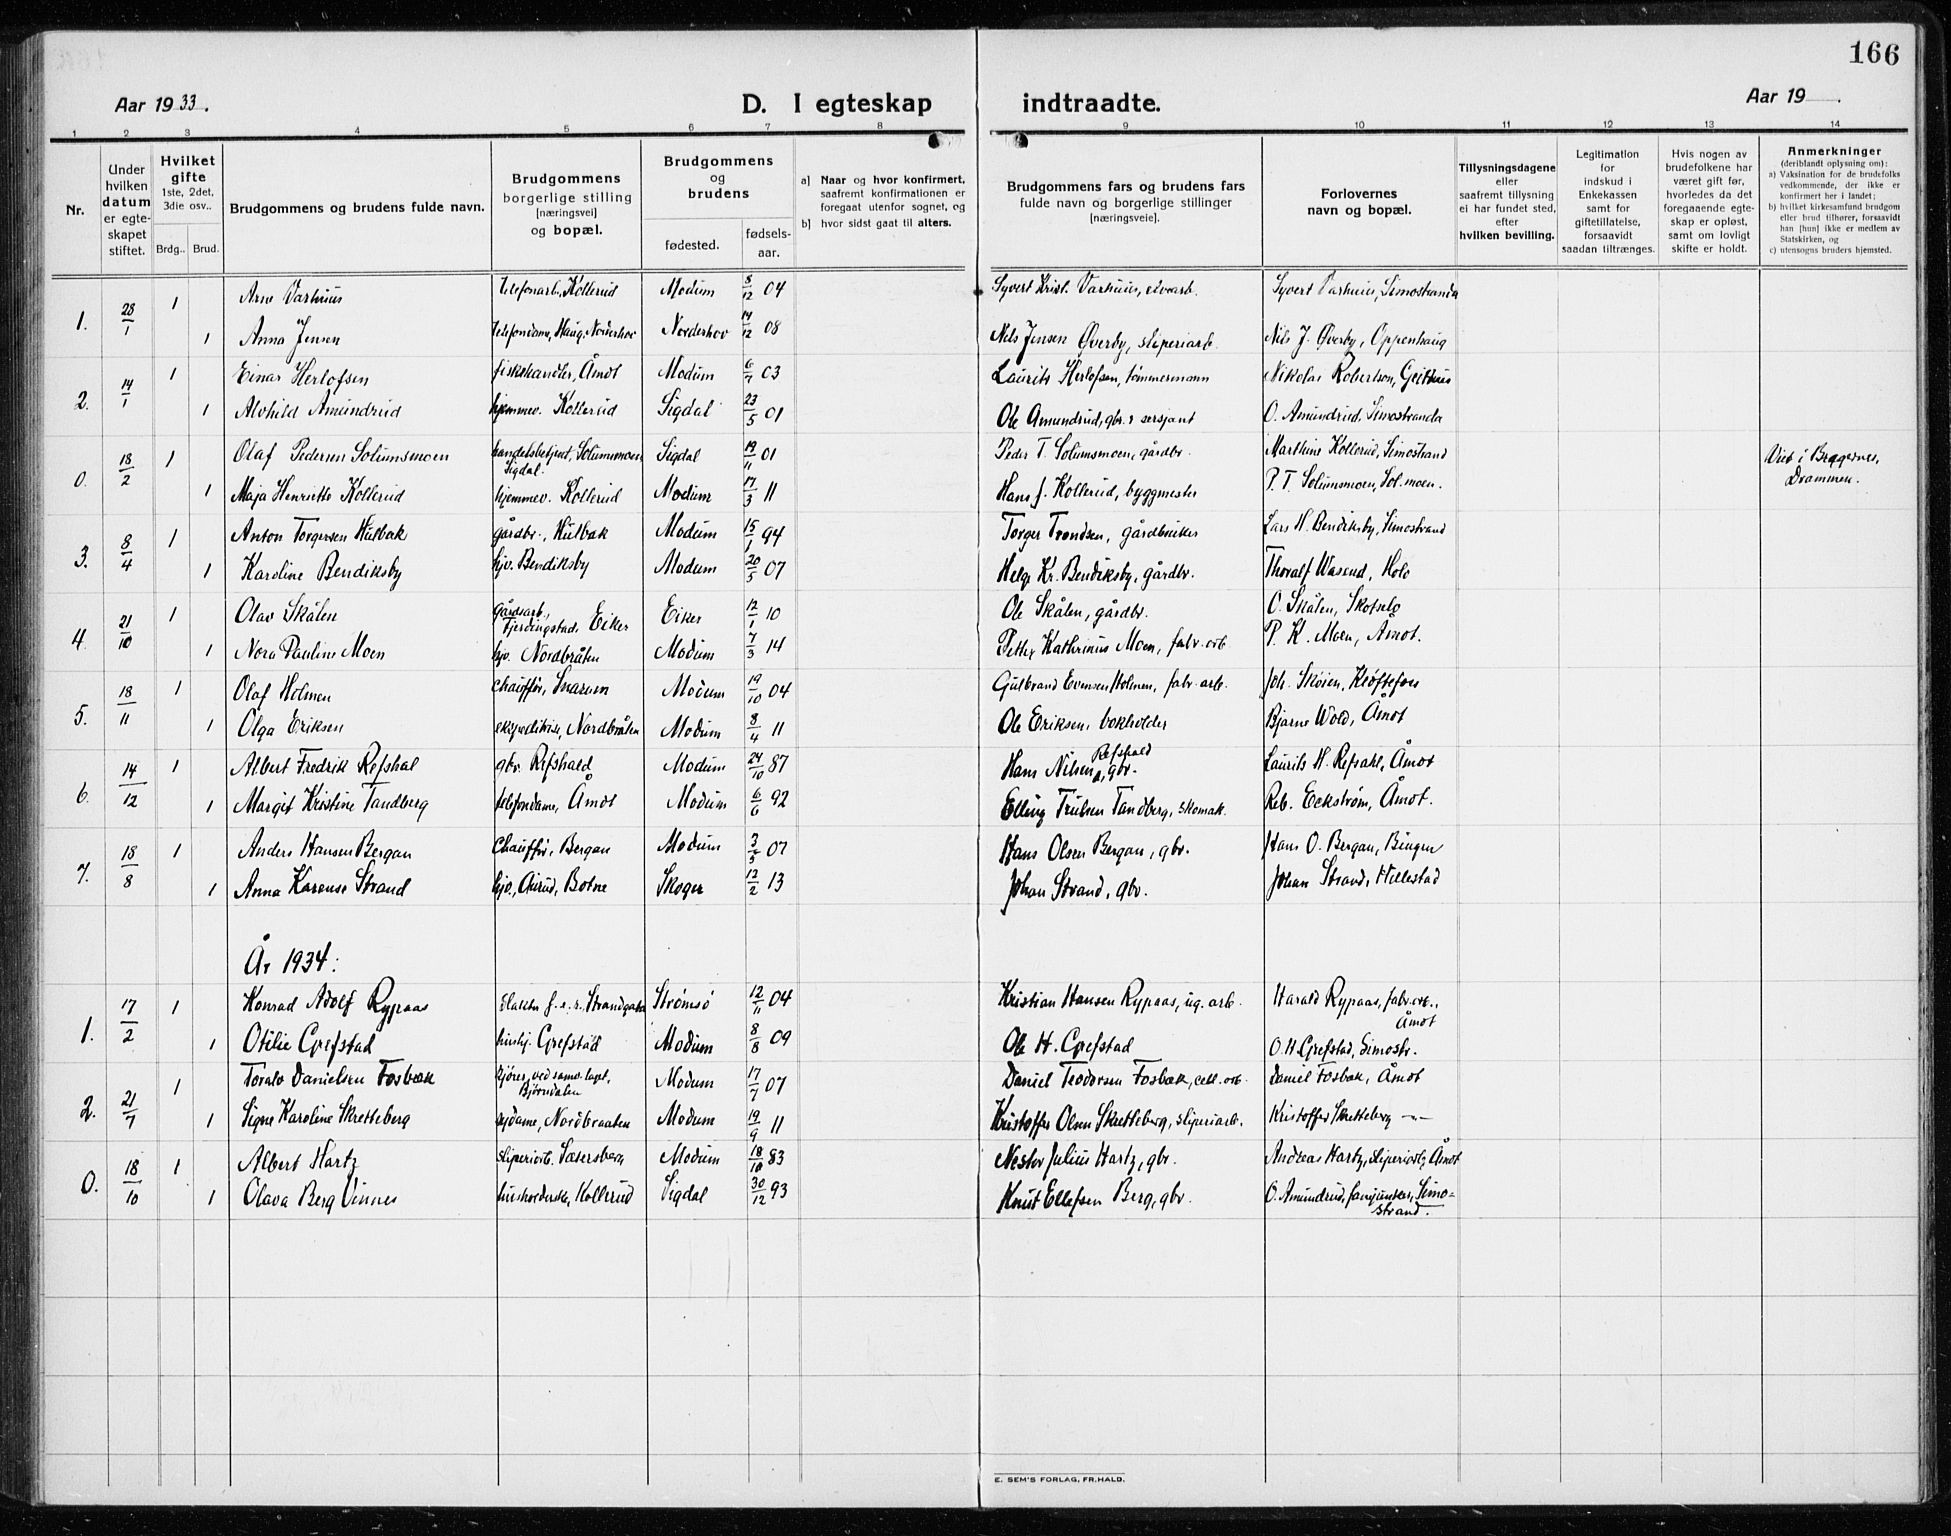 166
Aar 1933.
D. I egteskap indtraadte.
Aar 19 .
1 2 3 4 5 6 7 8 9 10 11 12 13 14
Nr.
Under hvilken datum er egte-skapet stiftet.
Hvilket gifte
1ste, 2det, 3die osv..
Brdg.. Brud.
Brudgommens og brudens fulde navn.
Brudgommens borgerlige stilling [næringsvei] og bopæl.
Brudgommens og brudens
fødested.
fødsels-aar.
a) Naar og hvor konfirmert, saafremt konfirmationen er foregaat utenfor sognet, og
b) hvor sidst gaat til alters.
Brudgommens fars og brudens fars fulde navn og borgerlige stillinger [næringsveie].
Forlovernes navn og bopæl.
Tillysningsdagene eller saafremt tillysning ei har fundet sted, efter hvilken bevilling.
Legitimation for indskud i Enkekassen samt for giftetillatelse, forsaavidt saadan tiltrænges.
Hvis nogen av brudefolkene har været gift før, hvorledes da det foregaaende egte-skap er opløst, samt om lovligt skifte er holdt.
Anmerkninger
(deriblandt oplysning om):
a) Vaksination for de brudefolks vedkommende, der ikke er konfirmert her i landet;
b) hvilket kirkesamfund brudgom eller brud tilhører, forsaavidt han [hun] ikke er medlem av Statskirken, og
c) utensogns bruders hjemsted.
1. 28/1 1 Arne Varhuus Telefonarb., Kollerud Modum 8/12 04 Syvert Krist. Varhuus, elvearb. Syvert Varhuus, Simostranda
1 Anna Jensen telefondame, Haug, Norderhov Norderhov 14/12 08 Nils Jensen Øverby, sliperiarb. Nils J. Øverby, Oppenhaug
2. 14/1 1 Einar Herlofsen fiskehandler, Åmot Modum 6/7 03 Laurits Herlofsen, tømmermann Nikolai Robertson, Geithus
1 Alvhild Amundrud hjemmev. Kollerud Sigdal 23/5 01 Ole Amundrud, gbr. & sersjant O. Amundrud, Simostranda
0. 18/2 1 Olaf Pedersen Solumsmoen handelsbetjent, Solumsmoen Sigdal. Sigdal 19/11 01 Peder T. Solumsmoen, gårdbr. Marthine Kollerud, Simostrand Viet i Bragernes, Drammen.
1 Maja Henriette Kollerud hjemmev. Kollerud Modum 17/3 11 Hans J. Kollerud, byggmester P. T. Solumsmoen, Sol.moen.
3. 8/4 1 Anton Torgersen Hulbak gårdbr., Hulbak Modum 15/1 94 Torger Trondsen, gårdbruker Lars H. Bendiksby, Simostrand
1 Karoline Bendiksby hjv. Bendiksby Modum 20/5 07 Helge Kr. Bendiksby, gårdbr. Thoralf Wasend, Hole
4. 21/10 1 Olav Skålen Gårdsarb., Fjerdingstad, Eiker Eiker 12/1 10 Ole Skålen, gårdbr. O. Skålen, Skotselv
1 Nora Pauline Moen hjv. Nordbråten Modum 7/3 14 Petter Kathrinus Moen, fabr. arb P. K. Moen, Åmot.
5. 18/11 1 Olaf Holmen Chauffør, Snarum Modum 19/10 04 Gulbrand Evensen Holmen, fabr. arb. Joh. Skøien, Kløftefoss
1 Olga Eriksen ekspeditrise, Nordbråten Modum 8/4 11 Ole Eriksen, bokholder Bjarne Wold, Åmot
6. 14/12 1 Albert Fredrik Refshal gbr. Refshald Modum 24/10 87 Hans Nilsen Refshald, gbr. Laurits H. Refsahl, Åmot
1 Margit Kristine Tandberg telefondame, Åmot Modum 6/6 92 Elling Trulsen Tandberg, skomak. Reb. Eckstrøm, Åmot.
7. 18/8 1 Anders Hansen Bergan Chauffør, Bergan Modum 3/5 07 Hans Olsen Bergan, gbr. Hans O. Bergan, Bingen
1 Anna Karense Strand hjv., Aurud, Botne Skoger 12/2 13 Johan Strand, gbr. Johan Strand, Hillestad
År 1934:
1. 17/2 1 Konrad Adolf Rypaas Slakter f. e. r., Strandgata Strømsø 12/11 04 Kristian Hansen Rypaas, ug. arb. Harald Rypaas, fabr. arb., Åmot
1 Otilie Grefstad hushj. Grefstad Modum 8/8 09 Ole H. Grefstad O. H. Grefstad, Simostr.
2. 21/7 1 Toralv Danielsen Fosbæk kjører, ved samv. laget, Bjørndalen Modum 17/7 07 Daniel Teodorsen Fosbæk, cell. arb. Daniel Fosbæk, Åmot
1 Signe Karoline Skretteberg hjdame, Nordbraaten Modum 19/9 11 Kristoffer Olsen Skretteberg, sliperiarb. Kristoffer Skretteberg —"—
0. 18/10 1 Albert Hartz sliperiarb. Sætersberg Modum 18/10 83 Nestor Julius Hartz, gbr. Andreas Hartz, sliperiarb, Åmot
1 Olava Berg Vinnes husholderske, Kollerud Sigdal 30/12 93 Knut Ellefsen Berg, gbr. O. Amundrud, fanejunker, Simo-strand.
E. SEM'S FORLAG, FR.HALD.